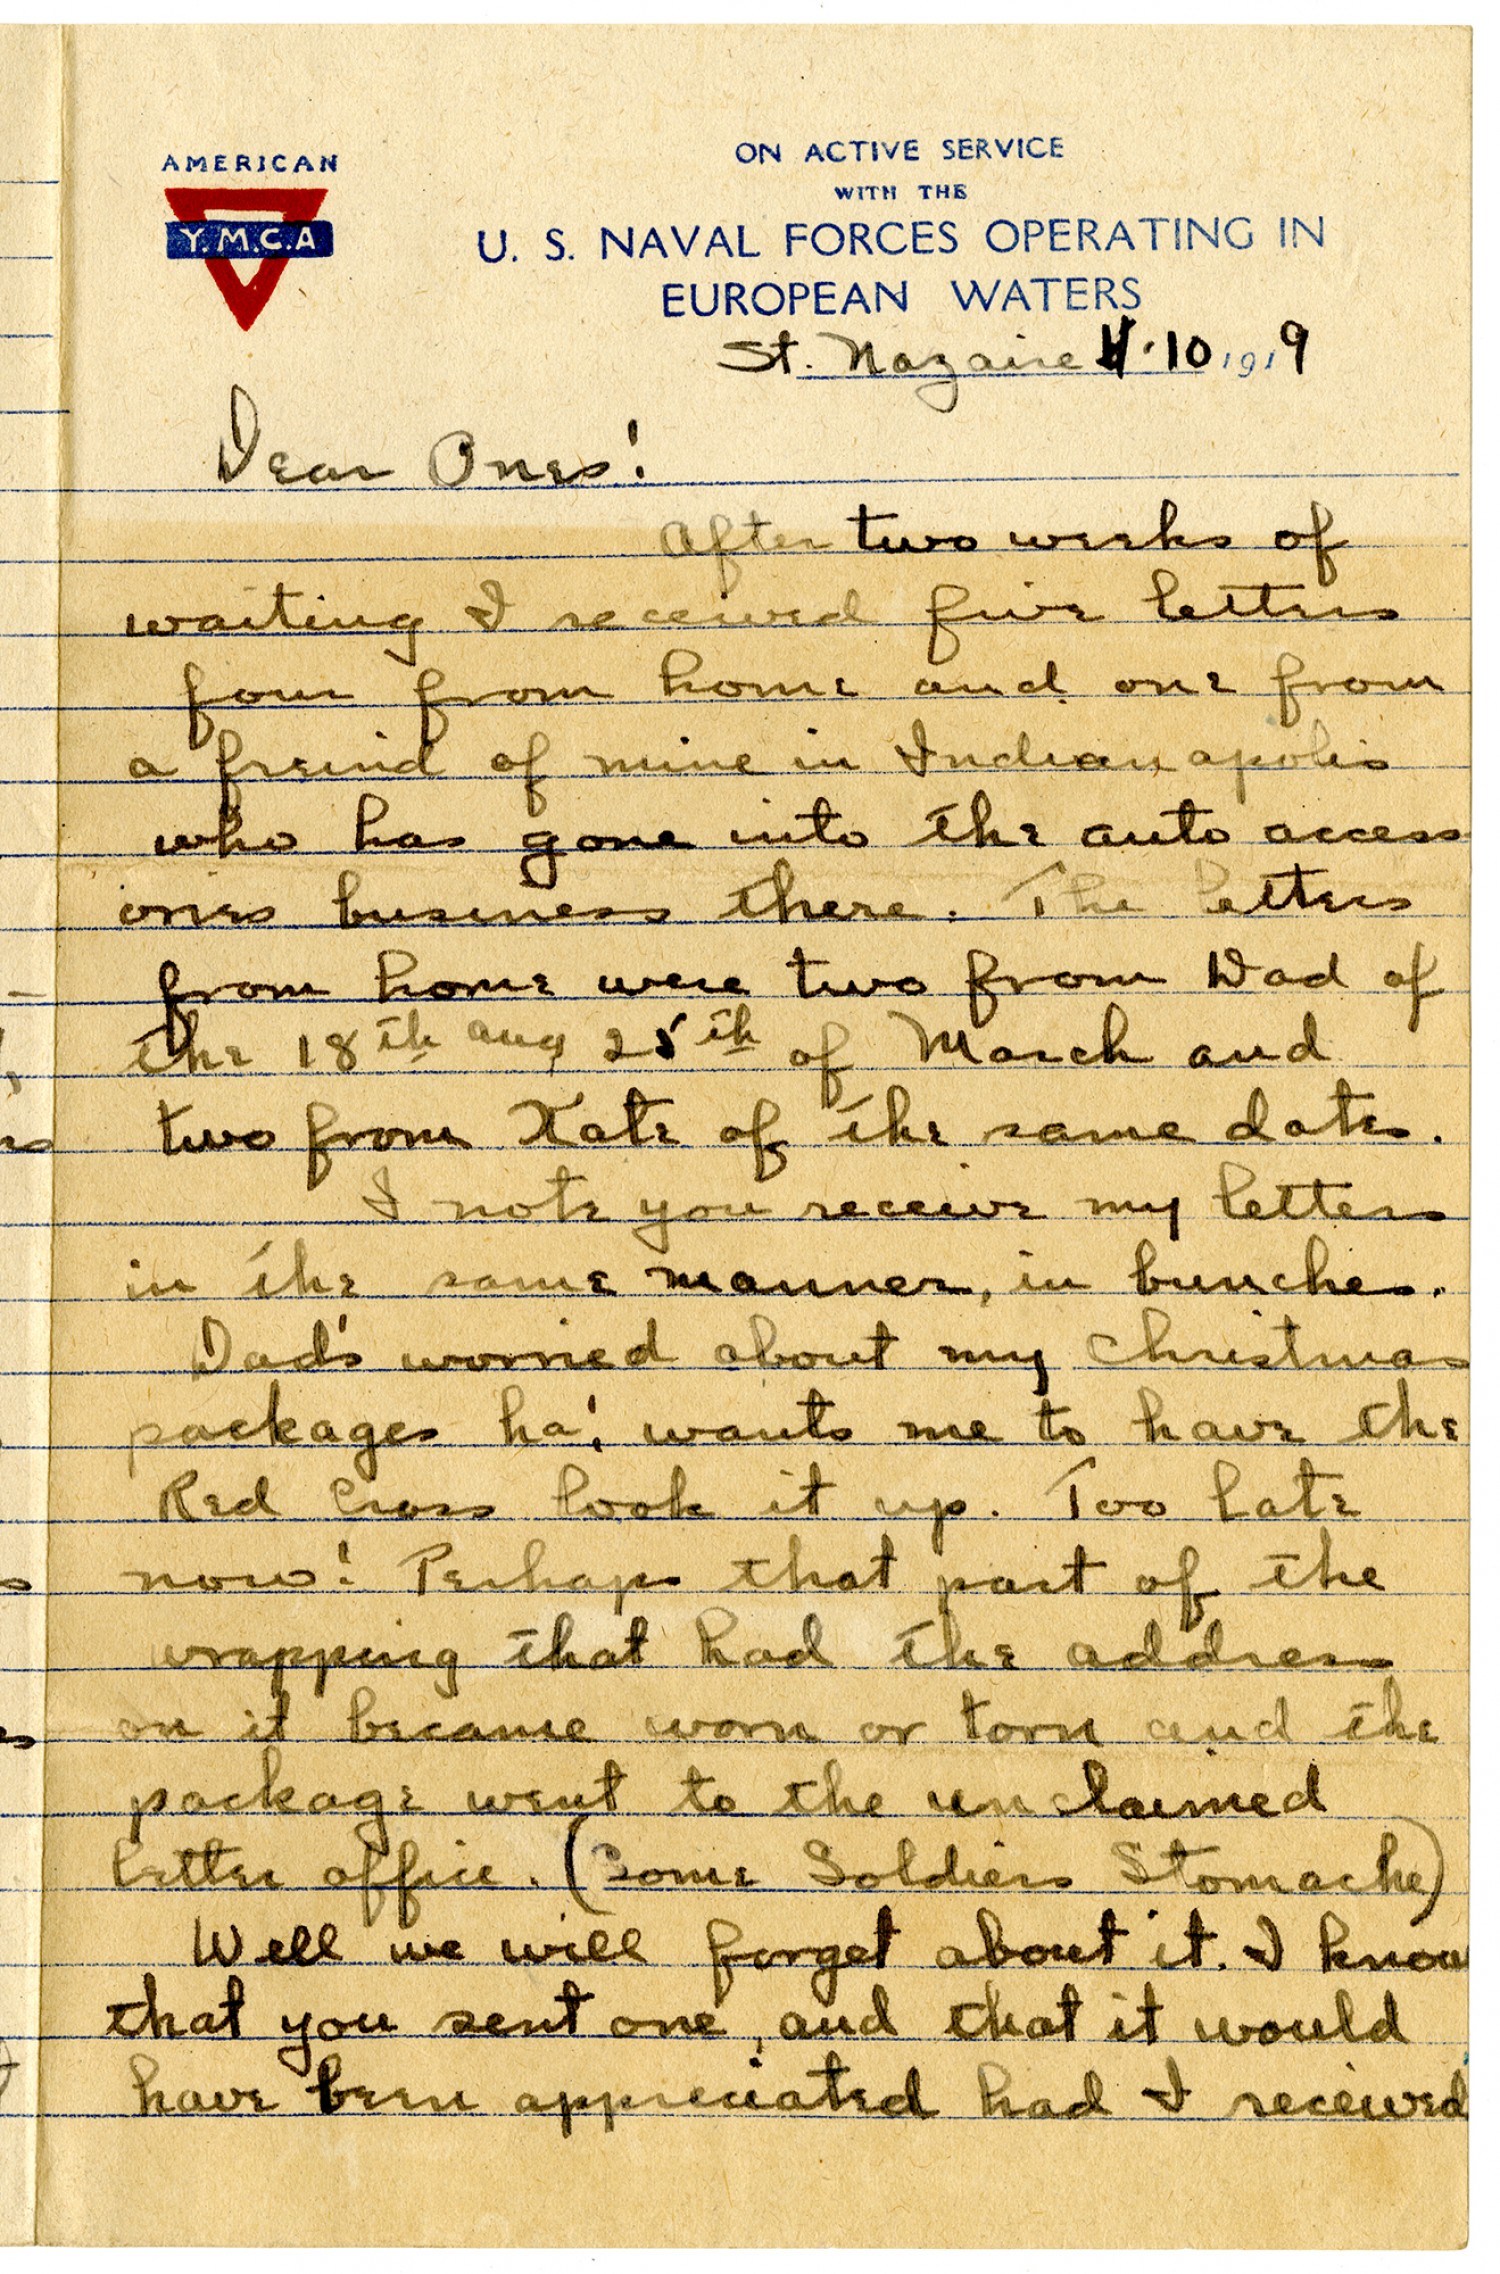 AMERICAN
Y.M.C.A
ON ACTIVE SERVICE
WITH THE
U. S. NAVAL FORCES OPERATING IN
EUROPEAN WATERS
St. Nazaire 4·10 1919
Dear Ones!
After two weeks of
waiting I received five letters
four from home and one from
a freind of mine in Indianapolis
who has gone into the auto access
ories business there. The letters
from home were two from Dad of
the 18th and 25th of March and
two from Kate of the same dates.
I note you receive my letters
in the same manner, in bunches.
Dad's worried about my Christmas
packages ha! wants me to have the
Red Cross look it up. Too late
now! Perhaps that part of the
wrapping that had the address
on it became worn or torn and the
package went to the unclaimed
letter office. (Some Soldiers Stomache)
Well we will forget about it. I know
that you sent one, and that it would
have been appreciated had I received